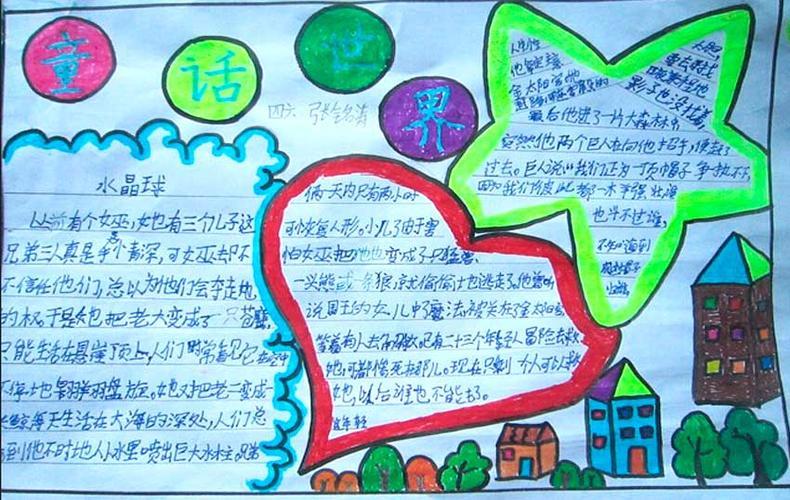 童话世界
四六
水晶球
从前有个女巫,她也有三个儿子这
兄弟三人真是手个青深,可女巫却不
不信任他们,总以为他们会夺走她
的权。于是她把老大变成了一只苍鹰,
只能生活在悬崖顶上,人们时常看见它在空中
不停地翱翔盘旋。她又把老二变成
鲸每天生活在大海的深处,人们总
看到他不时地从水里喷出巨大水柱。兄弟
俩一天内只有两小时
可恢复人形。小儿子由于害
怕女巫把他也变成了只猛兽,
一只熊或一条狼,就偷偷地逃走了。他曾听
说国王的女儿中了魔法,被关在了金太阳宫
等着有人去解救,已有二十三个年轻人冒险去救
她,可都惨死在那儿。现在只剩一个人可以救
她,以后谁也不能去了。
年轻
人生性
他铤
金太阳宫他
最后他进了一片大森林
突然他两个巨人在向他招手,便走了
过去。巨人说“我们正为一顶帽子争执不下,
因为我们彼此都一木羊强壮,谁
也斗不过谁,
不知道到
帽子